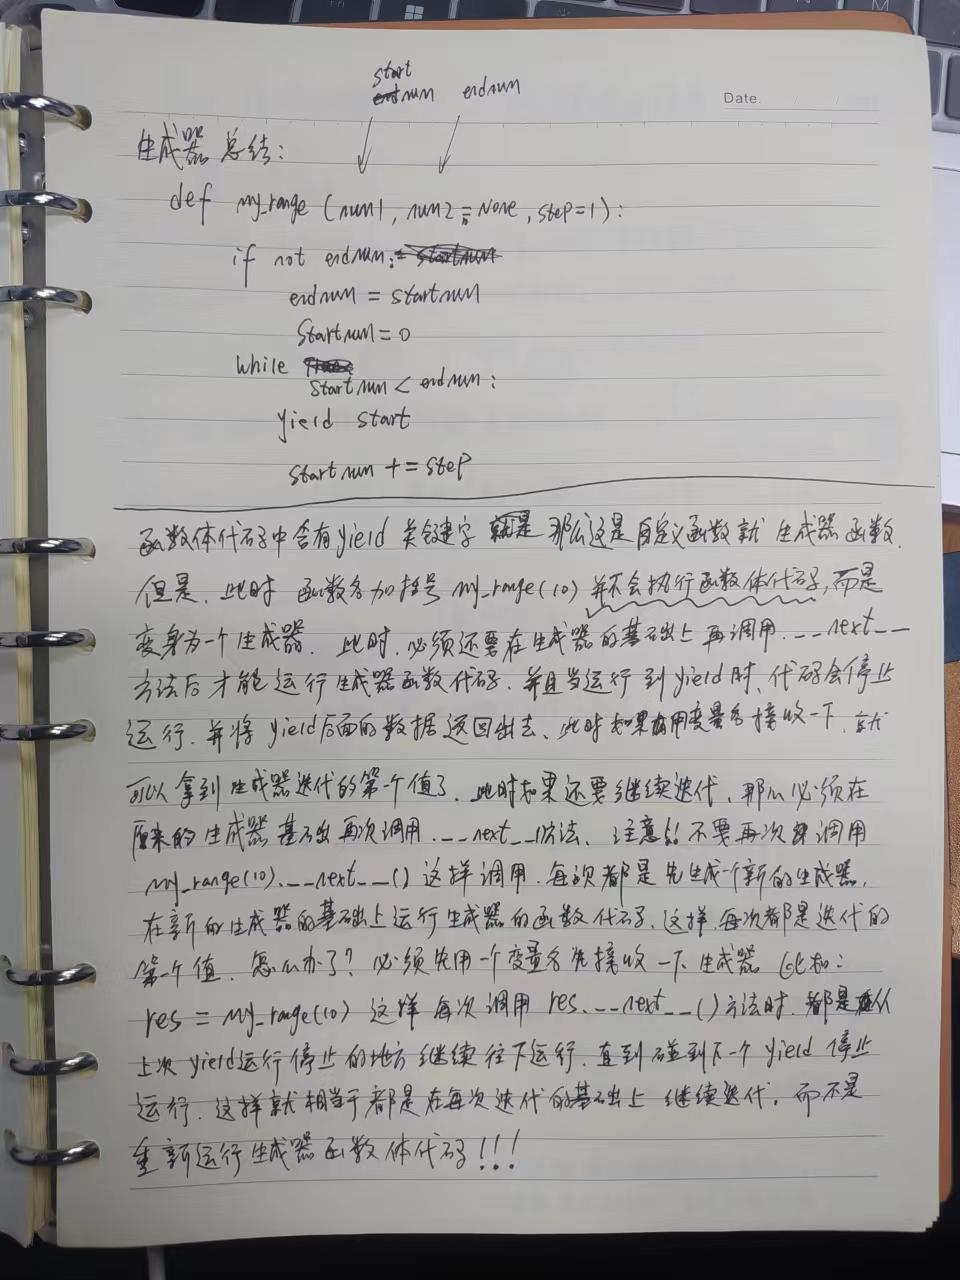 start
endnum endnum
Date.
生成器 总结:
def my_range (num1, num2=None, step=1):
if not endnum:
endnum = startnum
startnum = 0
while
startnum < endnum:
yield start
startnum += step
函数体代码中含有yield 关键字 就是 那么这是自定义函数就 生成器函数.
但是, 此时 函数名加括号 my_range(10) 并不会执行函数体代码, 而是
变身为一个生成器. 此时, 必须还要在生成器的基础上再调用.__next__
方法后才能运行生成器函数代码, 并且当运行到yield时、代码会停止
运行, 并将 yield后面的数据返回出去、此时如果有用变量名接收一下, 就
可以拿到生成器迭代的第一个值了. 此时如果还要继续迭代, 那么必须在
原来的生成器基础上再次调用.__next__()方法、注意点 不要再次 调用
my_range(10).__next__() 这样调用, 每次都是先生成一个新的生成器,
在新的生成器的基础上运行生成器的函数代码, 这样每次都是迭代的
第一个值, 怎么办了? 必须先用一个变量名先接收一下生成器 比如:
res = my_range(10) 这样 每次调用 res.__next__()方法时, 都是 从
上次 yield运行停止的地方继续往下运行, 直到碰到下一个 yield 停止
运行, 这样就相当于都是在每次迭代的基础上 继续迭代, 而不是
重新运行生成器函数体代码!!!